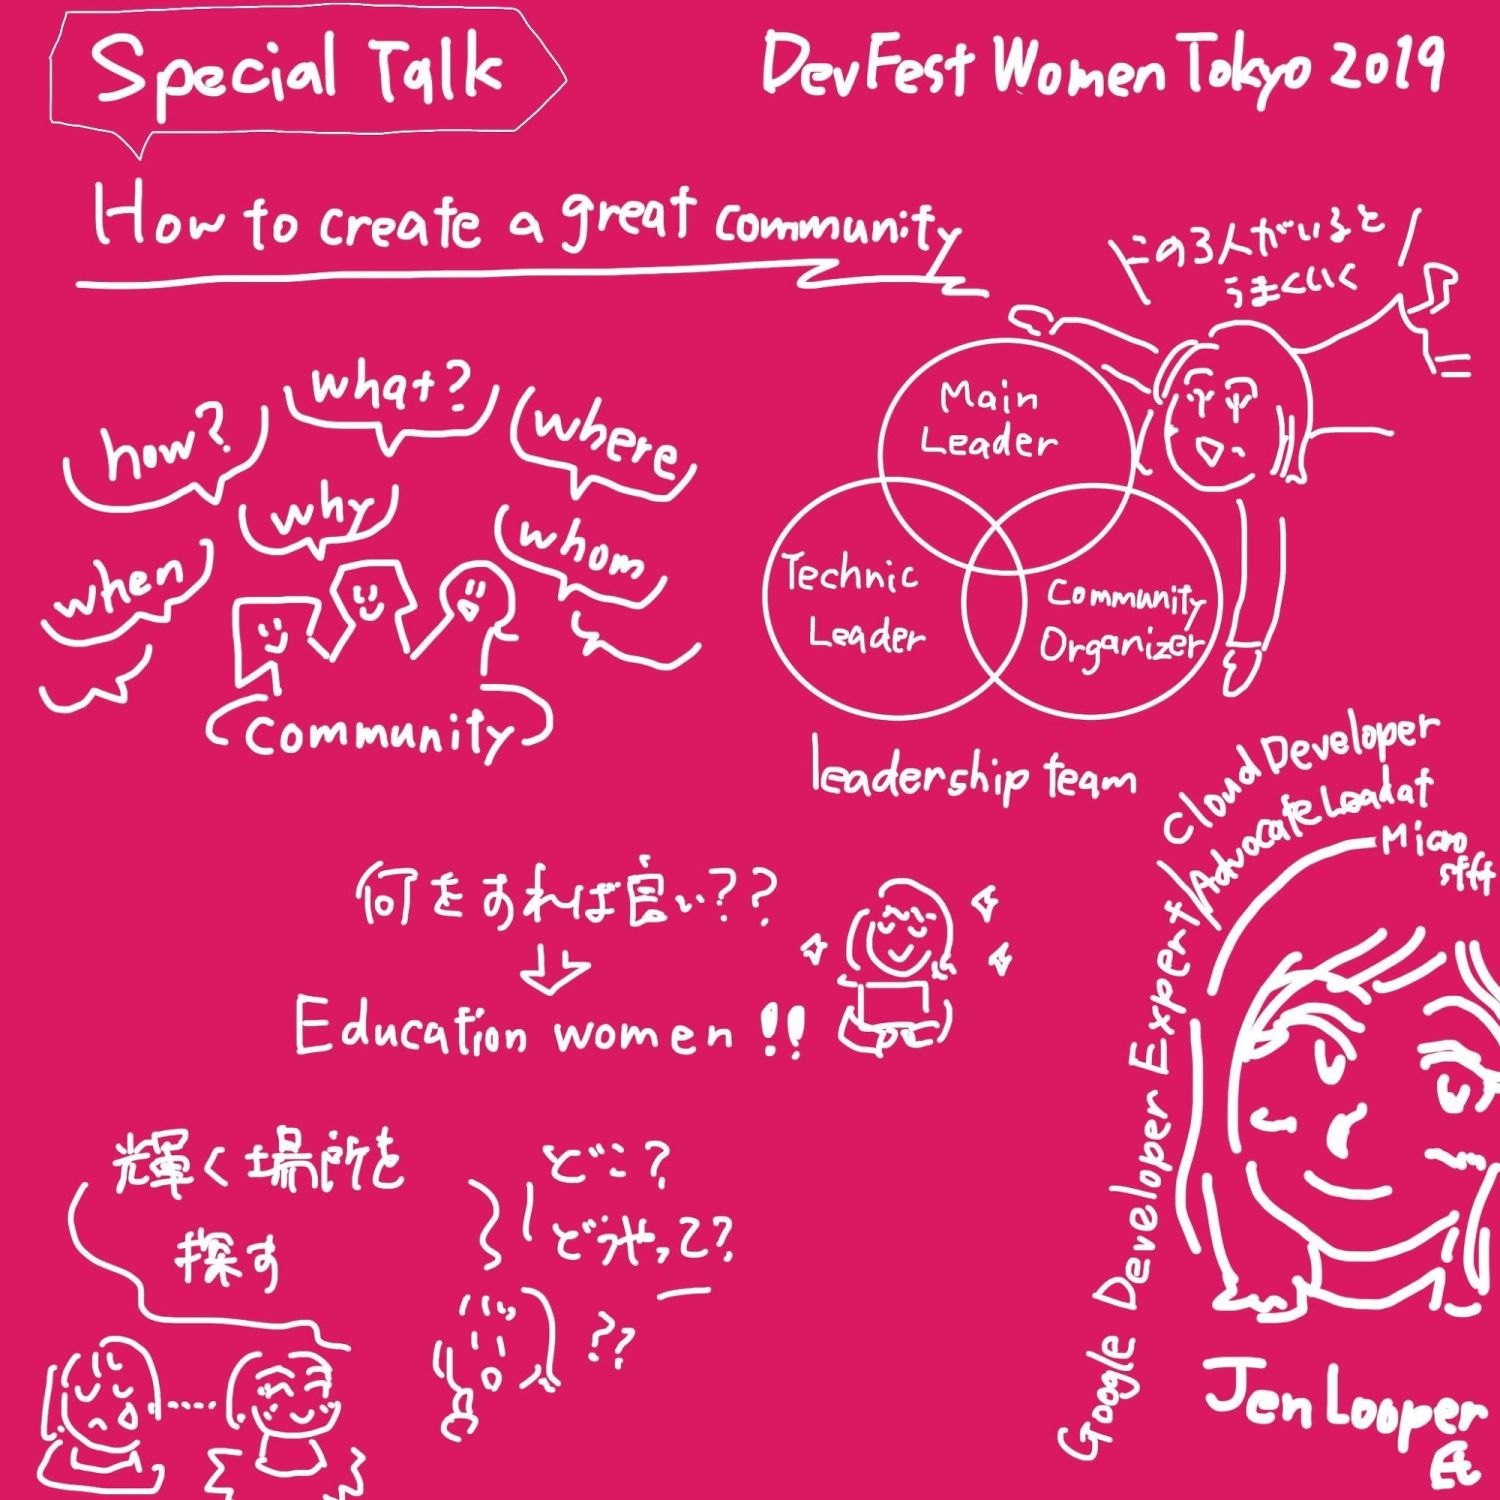 Special Talk
DevFest Women Tokyo 2019
How to create a great community
how?
what?
where
why
whom
when
community
この3人がいると
うまくいく
Main
Leader
Technic
Leader
Community
Organizer
leadership team
何をすれば良い??
Education women!!
輝く場所を
探す
どこ?
どうやって?
??
Google Developer Expert/
Cloud Developer
Advocate Lead at
Micro
soft
Jen Looper
氏